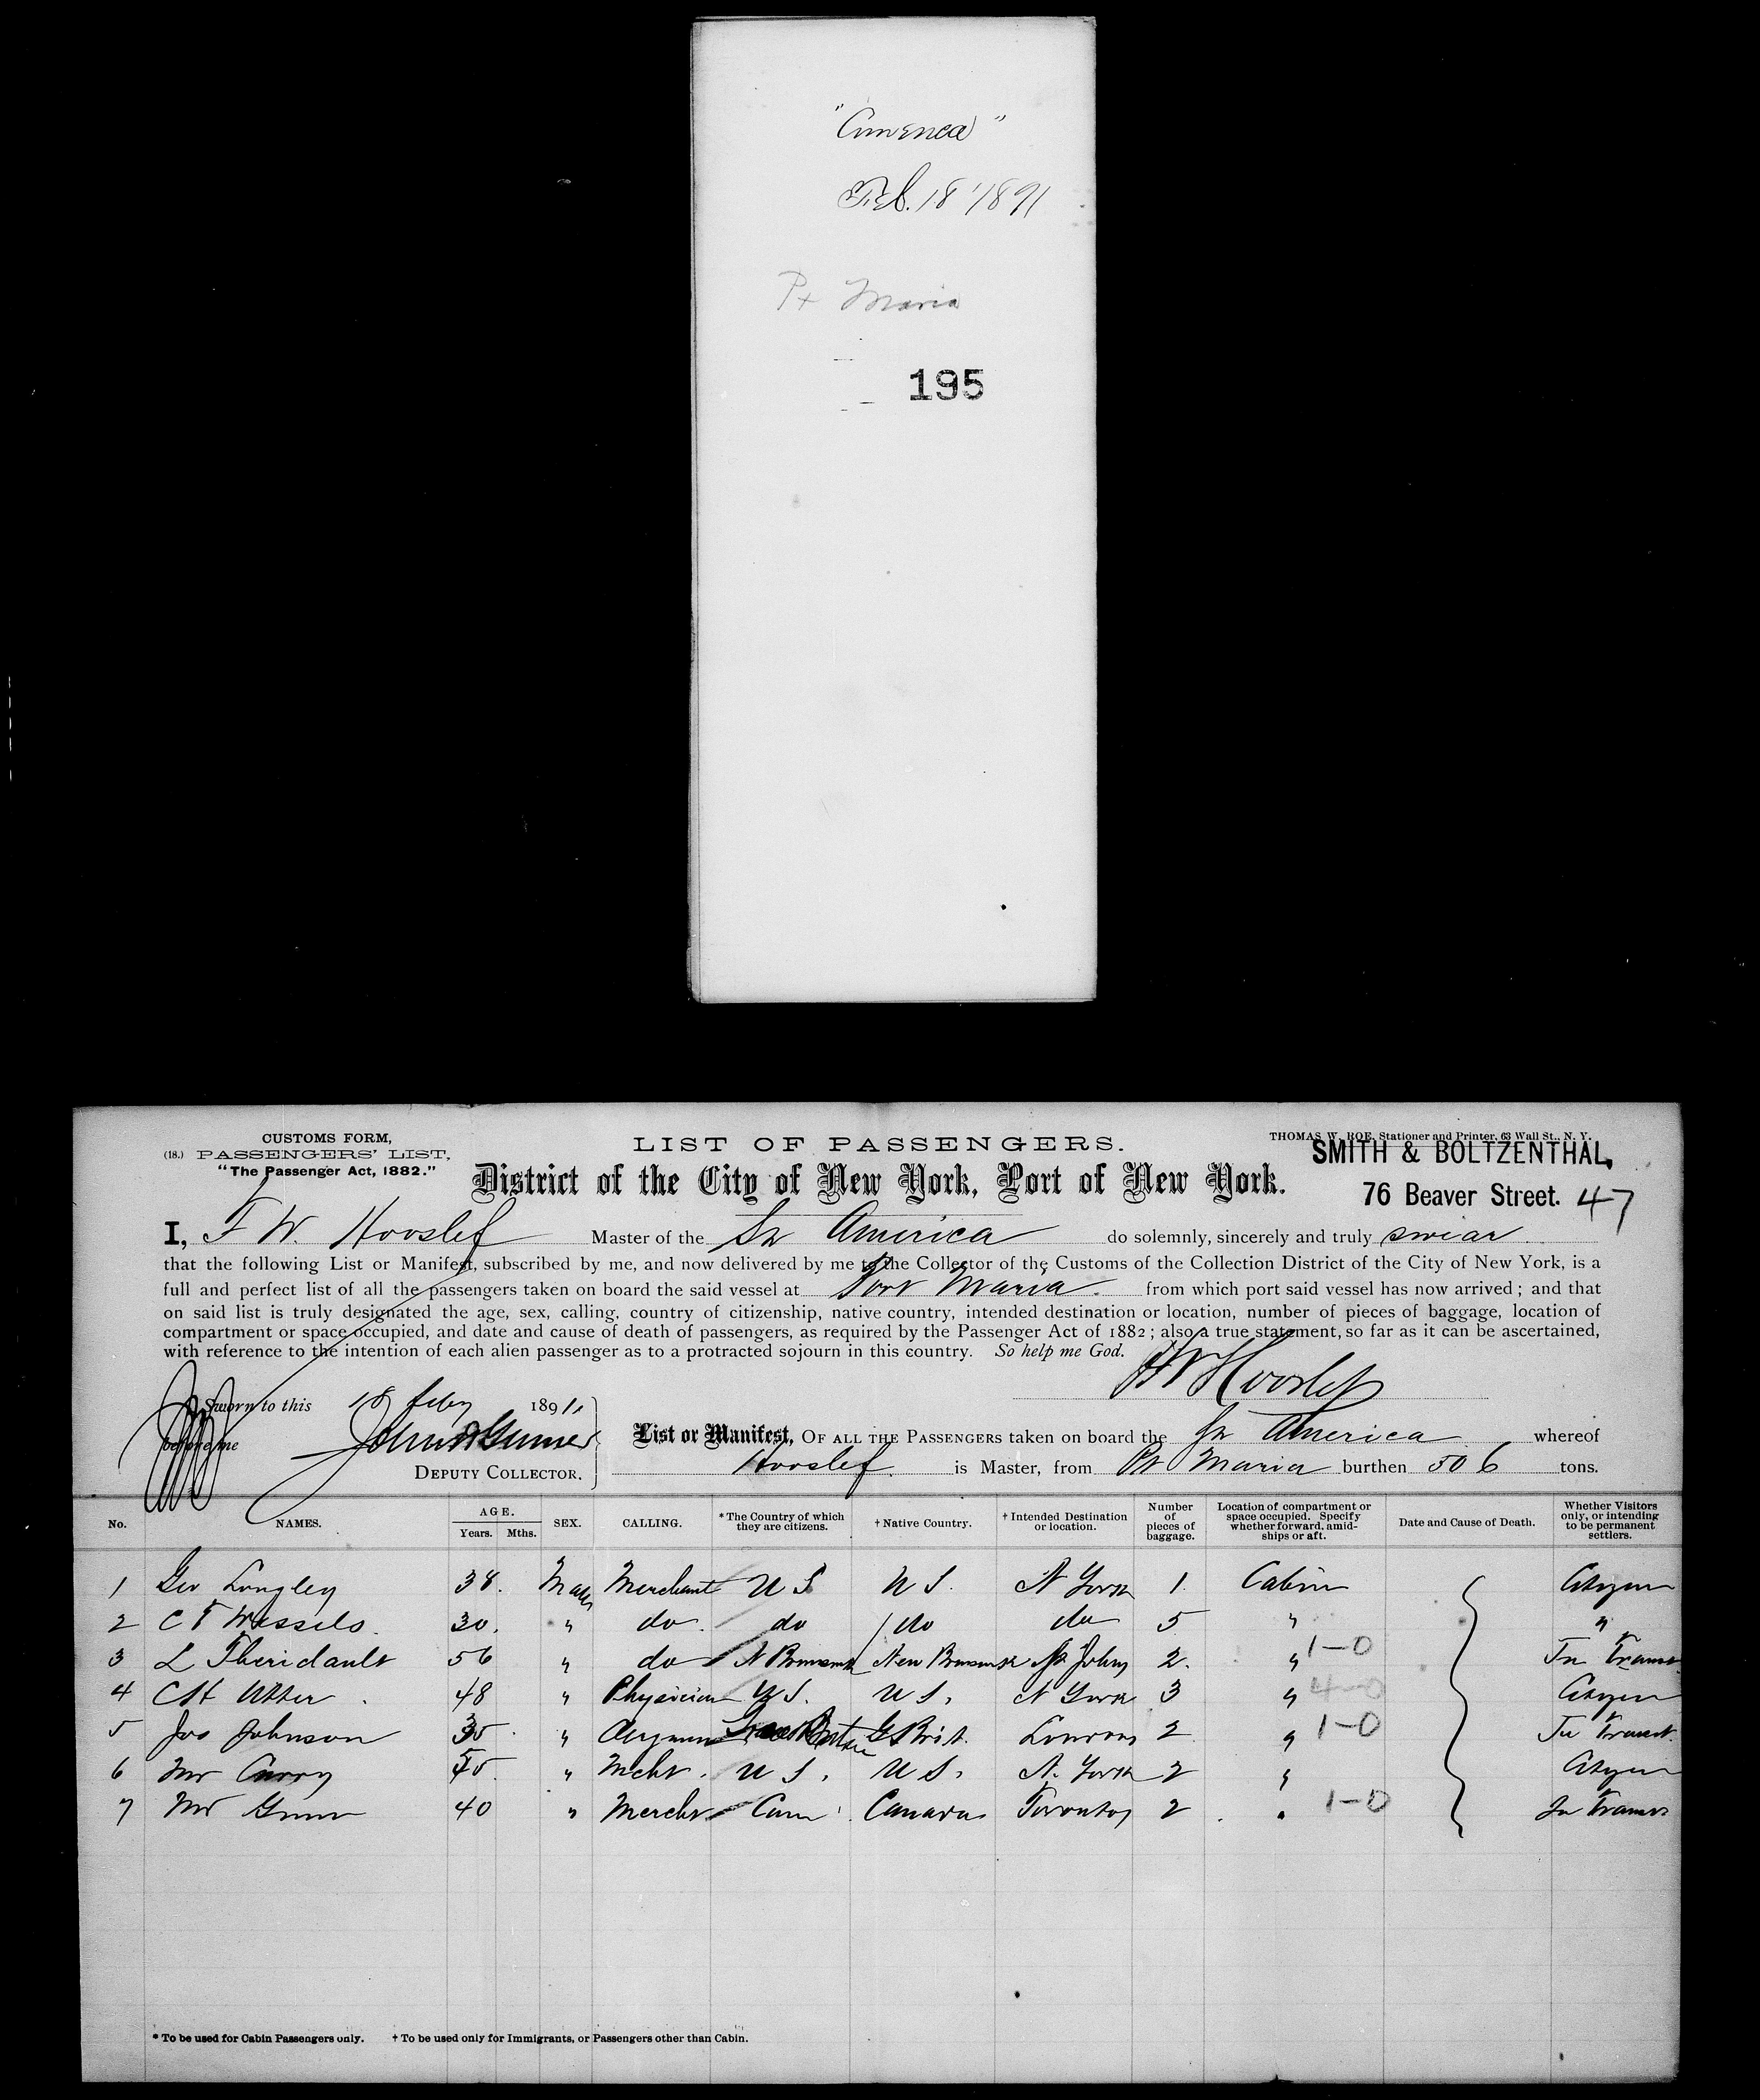 "America"
Feb. 18 1891
Pt Maria
195
CUSTOMS FORM,
(18.) PASSENGERS' LIST,
"The Passenger Act, 1882."
LIST OF PASSENGERS.
District of the City of New York, Port of New York.
THOMAS W. ROE, Stationer and Printer, 63 Wall St., N. Y.
SMITH & BOLTZENTHAL,
76 Beaver Street. 47
I, F W. Hooslef Master of the Sr America do solemnly, sincerely and truly swear
that the following List or Manifest, subscribed by me, and now delivered by me to the Collector of the Customs of the Collection District of the City of New York, is a
full and perfect list of all the passengers taken on board the said vessel at Port Maria. from which port said vessel has now arrived; and that
on said list is truly designated the age, sex, calling, country of citizenship, native country, intended destination or location, number of pieces of baggage, location of
compartment or space occupied, and date and cause of death of passengers, as required by the Passenger Act of 1882; also a true statement, so far as it can be ascertained,
with reference to the intention of each alien passenger as to a protracted sojourn in this country. So help me God.
FW Hooslef
Sworn to this 18 Feby 1891
before me
DEPUTY COLLECTOR.
List or Manifest, OF ALL THE PASSENGERS taken on board the Sr America whereof
Hooslef is Master, from Pt Maria burthen 506 tons.
No. NAMES. AGE. Years. Mths. SEX. CALLING. *The Country of which they are citizens. †Native Country. †Intended Destination or location. Number of pieces of baggage. Location of compartment or space occupied. Specify whether forward, amidships or aft. Date and Cause of Death. Whether Visitors only, or intending to be permanent settlers.
1 Geo Longley 38. Male Merchant U S U S. N York 1. Cabin Citizen
2 C F Wessels. 30. " do. do do do 5 " "
3 L Theridault 56 " do N Brunswick New Brunswick St Johns 2. " 1-0 In Transit
4 C H Utter 48 " Physician U S. U S. N York 3 " 4-0 Citizen
5 Jos Johnson 35 " G Brit. London 2 " 1-0 In Transit.
6 Mr Curry 45. " Mcht. U S. U S. N. York 2 " Citizen
7 Mr Gunn 40 " Mercht Can Canada Toronto 2 " 1-0 In Transit
* To be used for Cabin Passengers only. † To be used only for Immigrants, or Passengers other than Cabin.